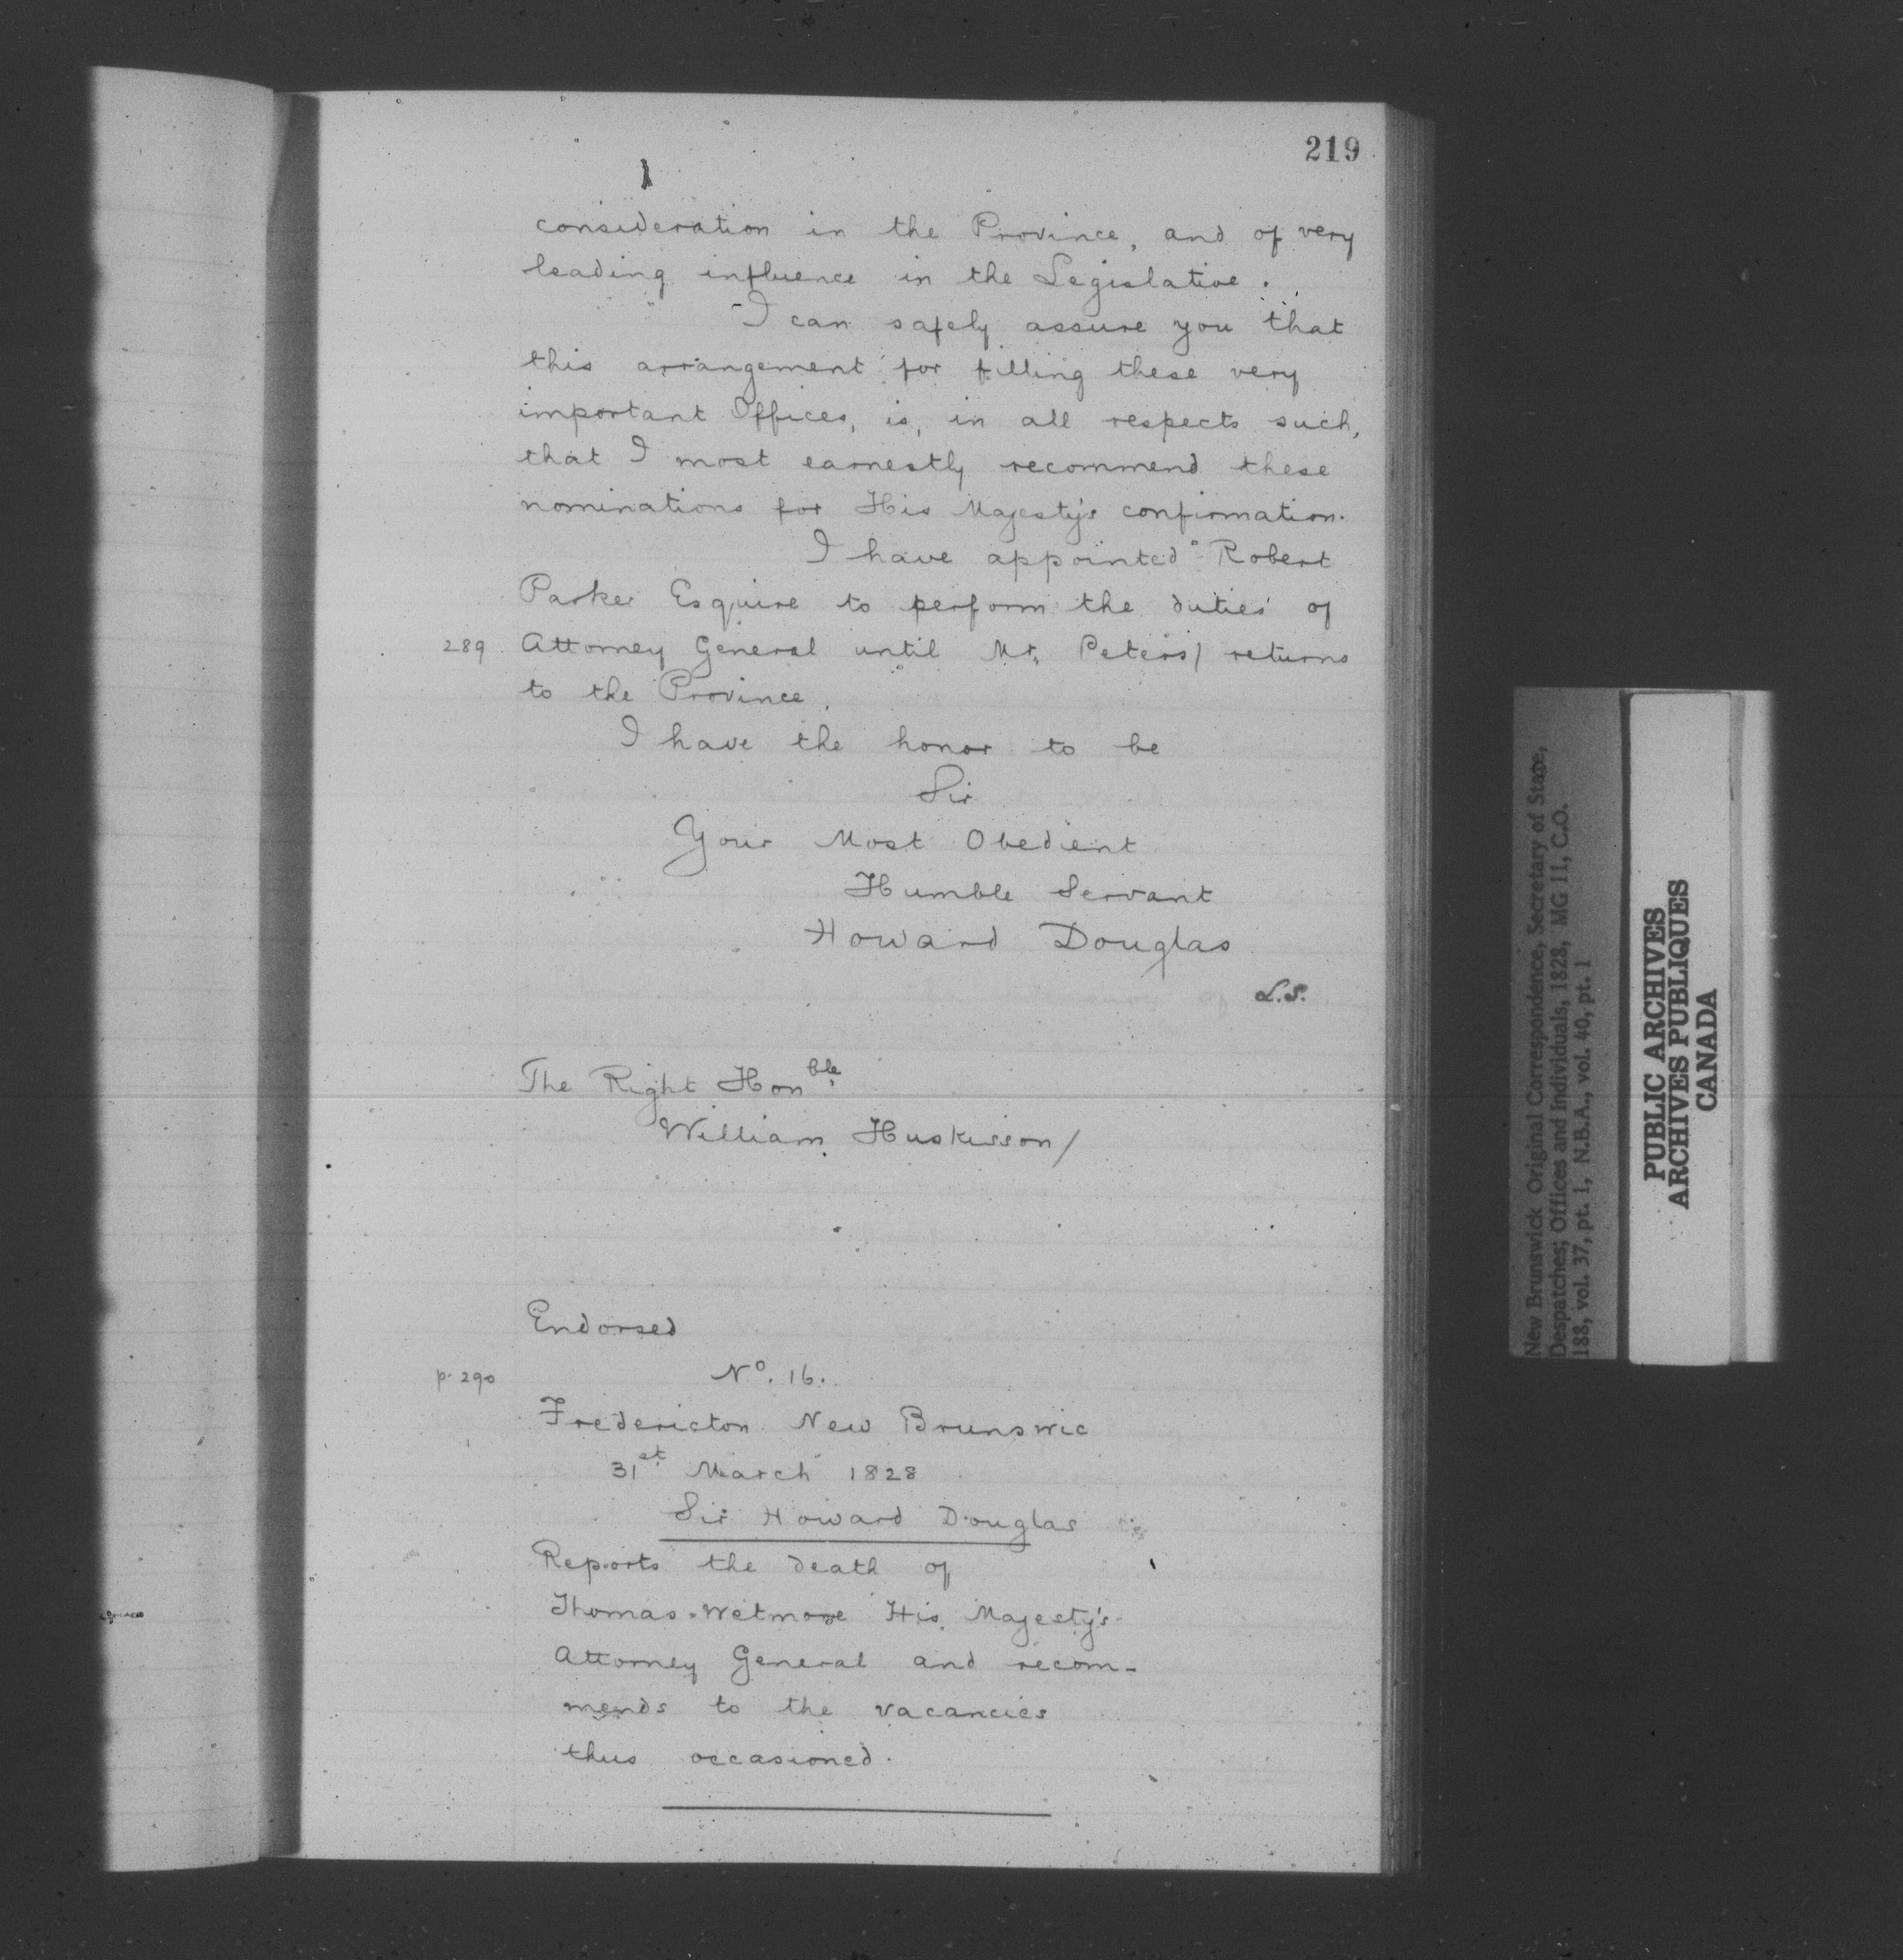 219
consideration in the Province, and of very
leading influence in the Legislative.
I can safely assure you that
this arrangement for filling these very
important Offices, is, in all respects such,
that I most earnestly recommend these
nominations for His Majesty's confirmation.
I have appointed Robert
Parker Esquire to perform the duties of
289 Attorney General until Mr. Peters/ returns
to the Province.
I have the honor to be
Sir
Your Most Obedient
Humble Servant
Howard Douglas
L.S.
The Right Honble.
William Huskisson/
Endorsed
p. 290 No. 16.
Fredericton New Brunswic
31st March 1828
Sir Howard Douglas
Reports the death of
Thomas Wetmore His Majesty's
Attorney General and recom-
mends to the vacancies
thus occasioned.
New Brunswick Original Correspondence, Secretary of State,
Despatches; Offices and Individuals, 1828, MG 11, C.O.
188, vol. 37, pt. 1, N.B.A., vol. 40, pt. 1
PUBLIC ARCHIVES
ARCHIVES PUBLIQUES
CANADA